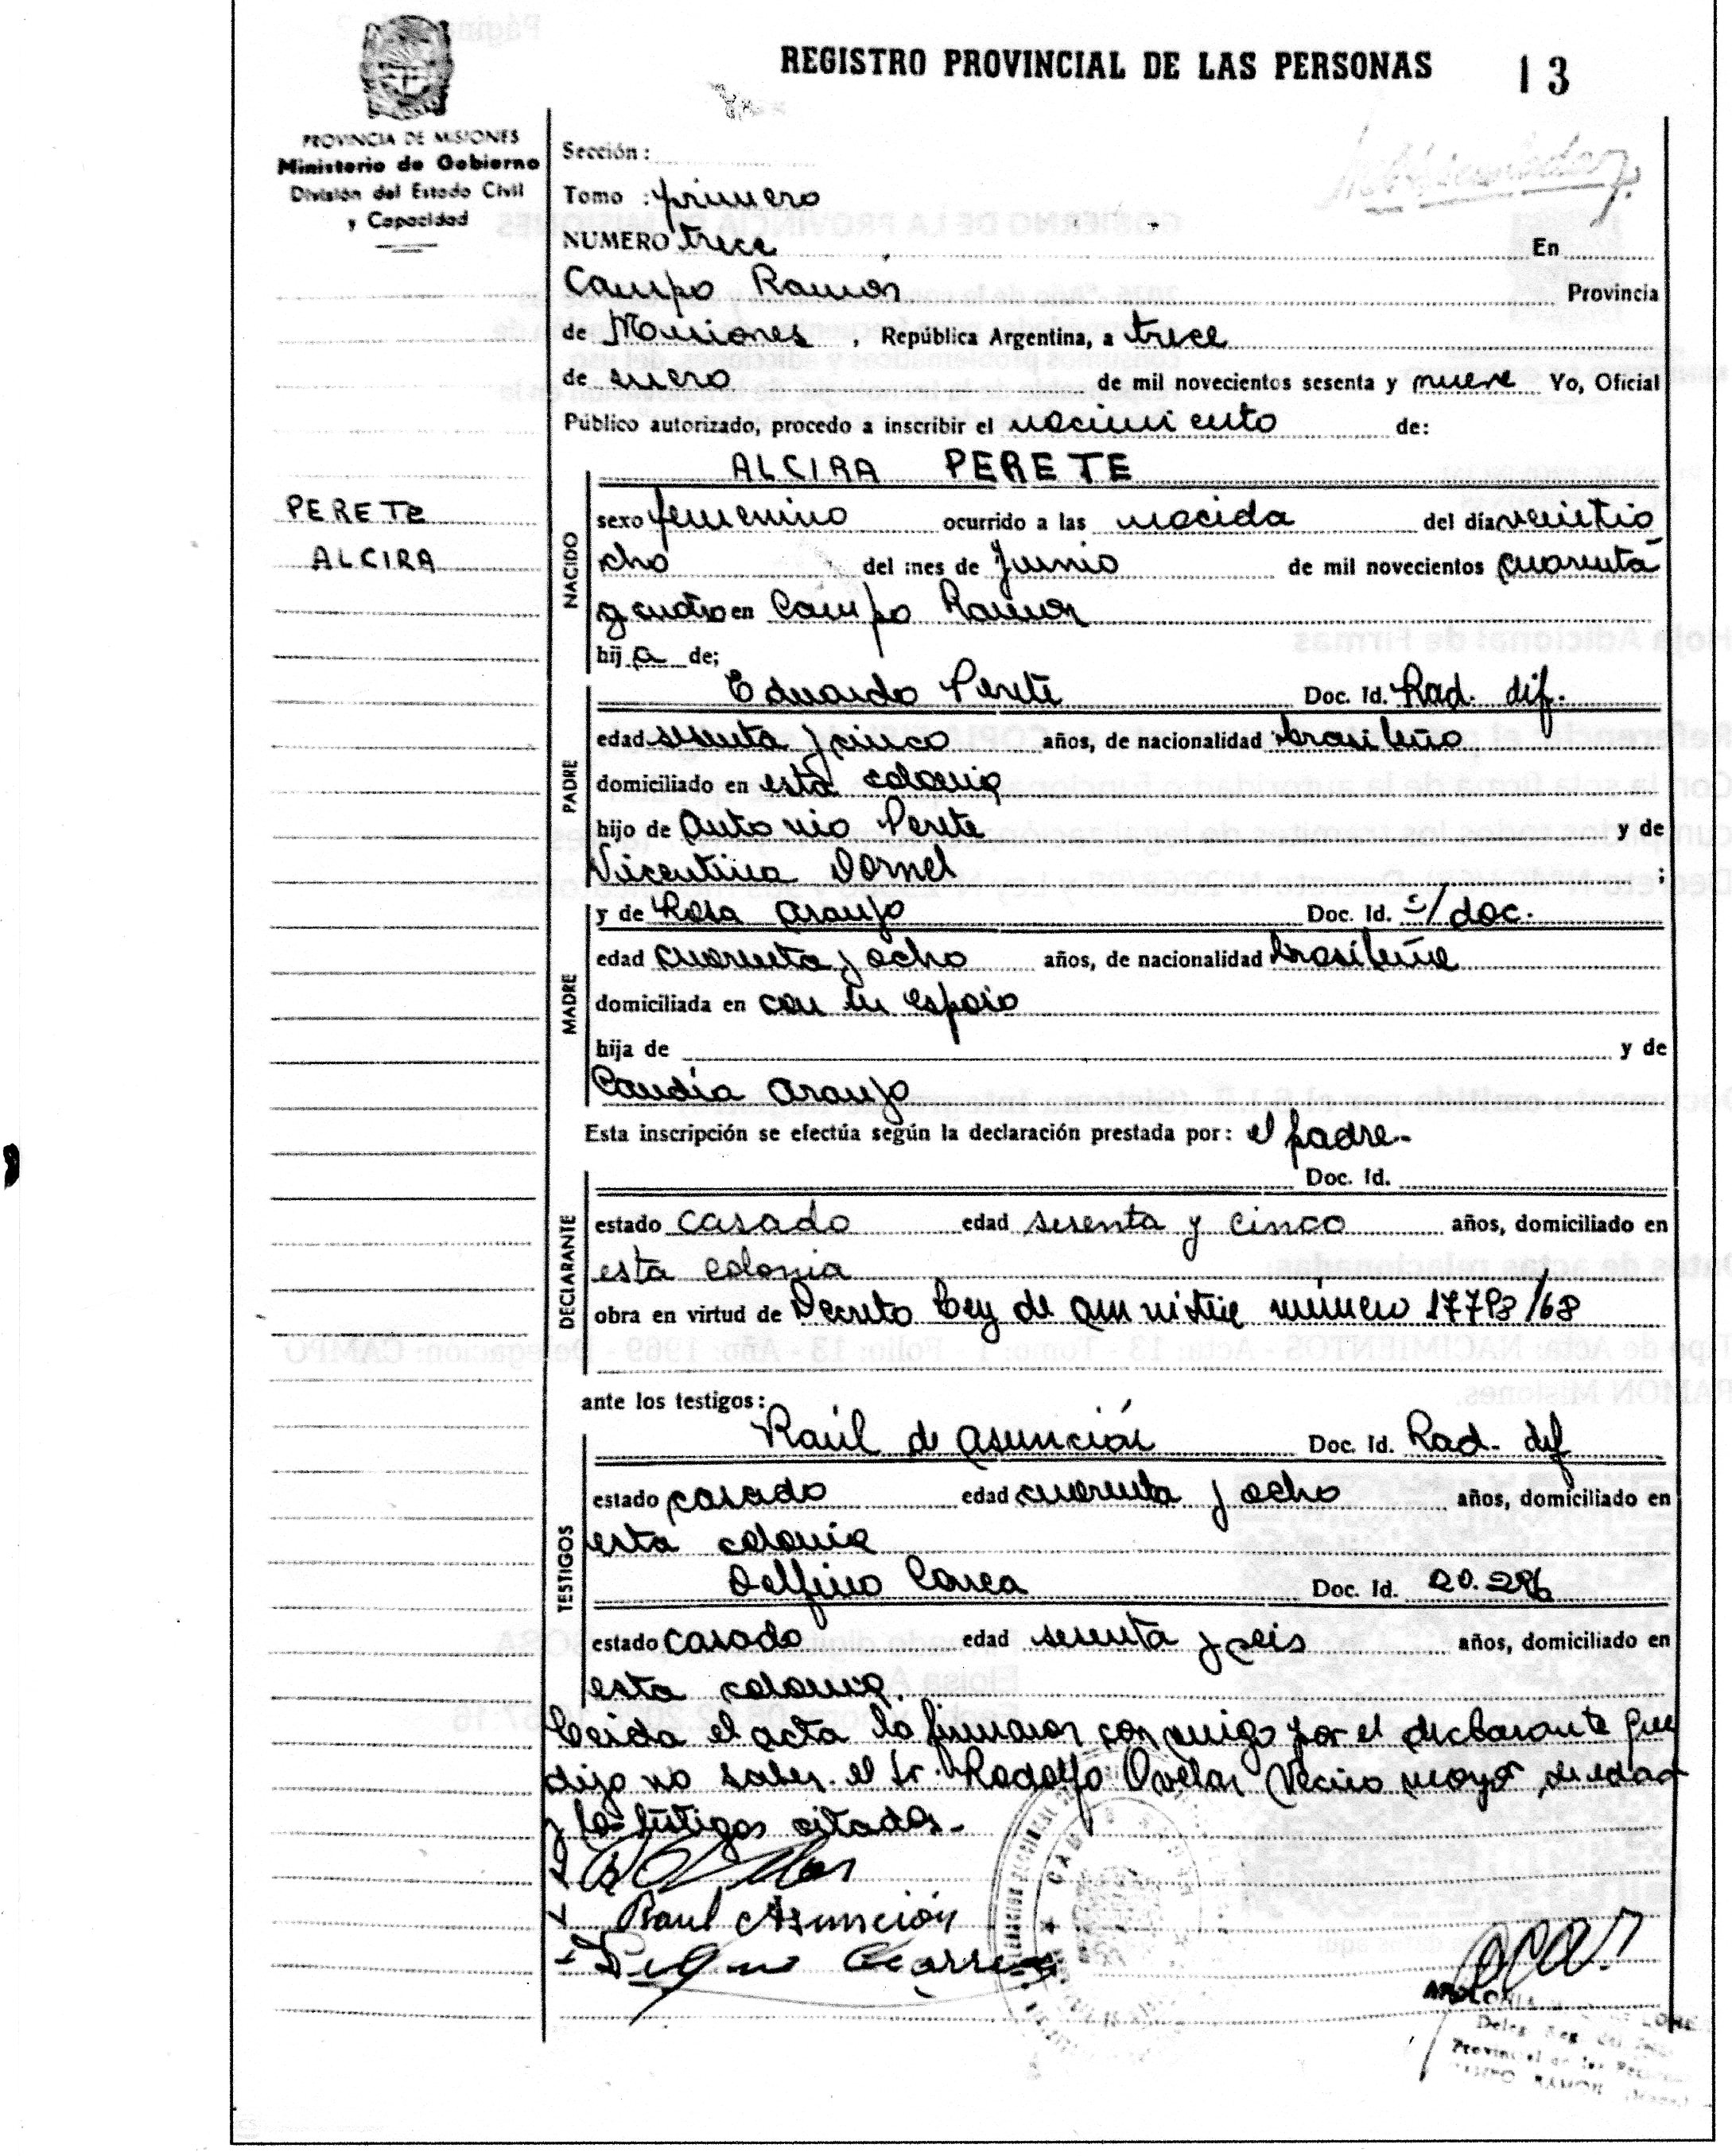 REGISTRO PROVINCIAL DE LAS PERSONAS 13
PROVINCIA DE MISIONES
Ministerio de Gobierno
División del Estado Civil
y Capacidad
Sección:
Tomo: primero
NUMERO trece En
Campo Ramón Provincia
de Misiones, República Argentina, a trece
de enero de mil novecientos sesenta y nueve Yo, Oficial
Público autorizado, procedo a inscribir el nacimiento de:
ALCIRA PERETE
PERETE
ALCIRA
NACIDO
sexo femenino ocurrido a las nacida del día veintio
cho del mes de Junio de mil novecientos cuarenta
y cuatro en Campo Ramon
hija de;
PADRE
Eduardo Perete Doc. Id. Rad. dif.
edad sesenta y cinco años, de nacionalidad brasileño
domiciliado en esta colonia
hijo de Antonio Perete y de
Vicentina Dornel ;
MADRE
y de Rosa Araujo Doc. Id. s/doc.
edad cuarenta y ocho años, de nacionalidad brasileña
domiciliada en con su esposo
hija de y de
Candia Araujo
Esta inscripción se efectúa según la declaración prestada por: el padre.-
DECLARANTE
Doc. Id.
estado casado edad sesenta y cinco años, domiciliado en
esta colonia
obra en virtud de Decreto Ley de amnistia número 17793/68
ante los testigos:
TESTIGOS
Raúl de Asunción Doc. Id. Rad. def
estado casado edad cuarenta y ocho años, domiciliado en
esta colonia
Delfino Doc. Id. 20.296
estado casado edad sesenta y seis años, domiciliado en
esta colonia.
Leida el acta la firmaron conmigo por el declarante que
dijo no saber el Sr. Rodolfo Ovelar Vecino mayor de edad
y los testigos citados.-
Raul Asunción